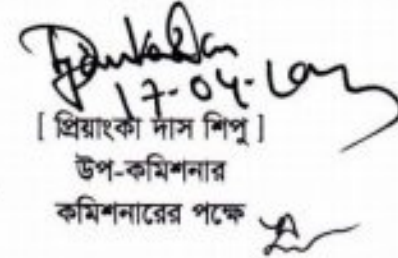 17-04-
[ প্রিয়াংকা দাস শিপু ]
উপ-কমিশনার
কমিশনারের পক্ষে